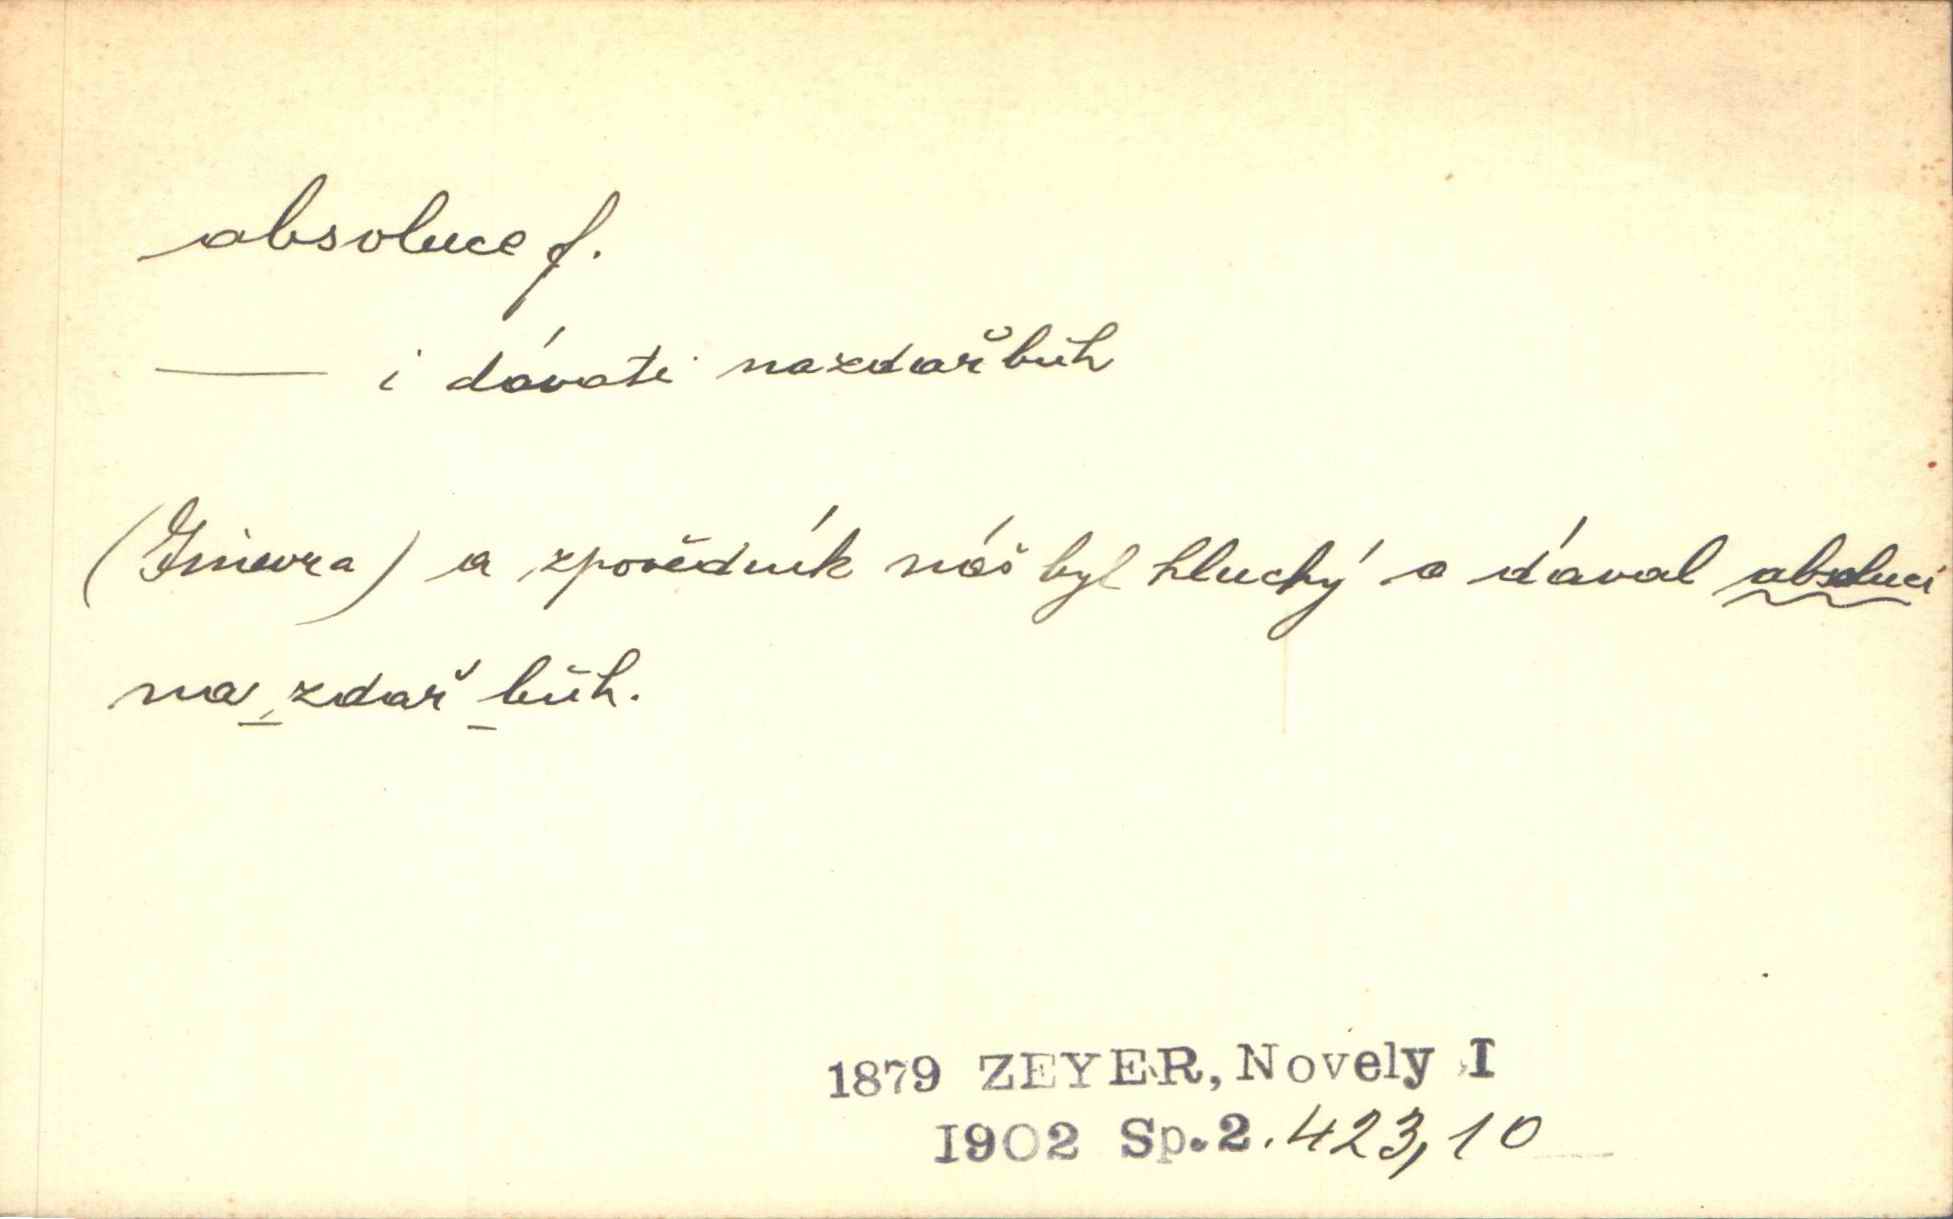 absoluce f.
— i dávati nazdařbůh
(Ginevra) a zpovědník náš byl hluchý a dával absoluci
na zdař bůh.
1879 ZEYER, Novely I
1902 Sp.2. 423,10